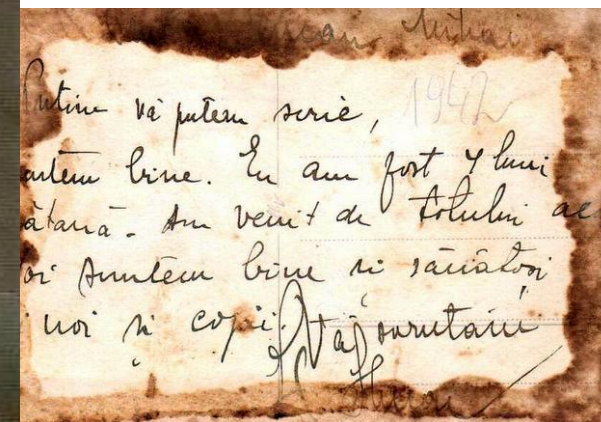 Mihai
1942
Puține vă putem scrie,
untem bine. Eu am fost 4 luni
ătană. Am venit de totului
oi suntem bine și sănătoși
noi și copii. Vă sărutăm